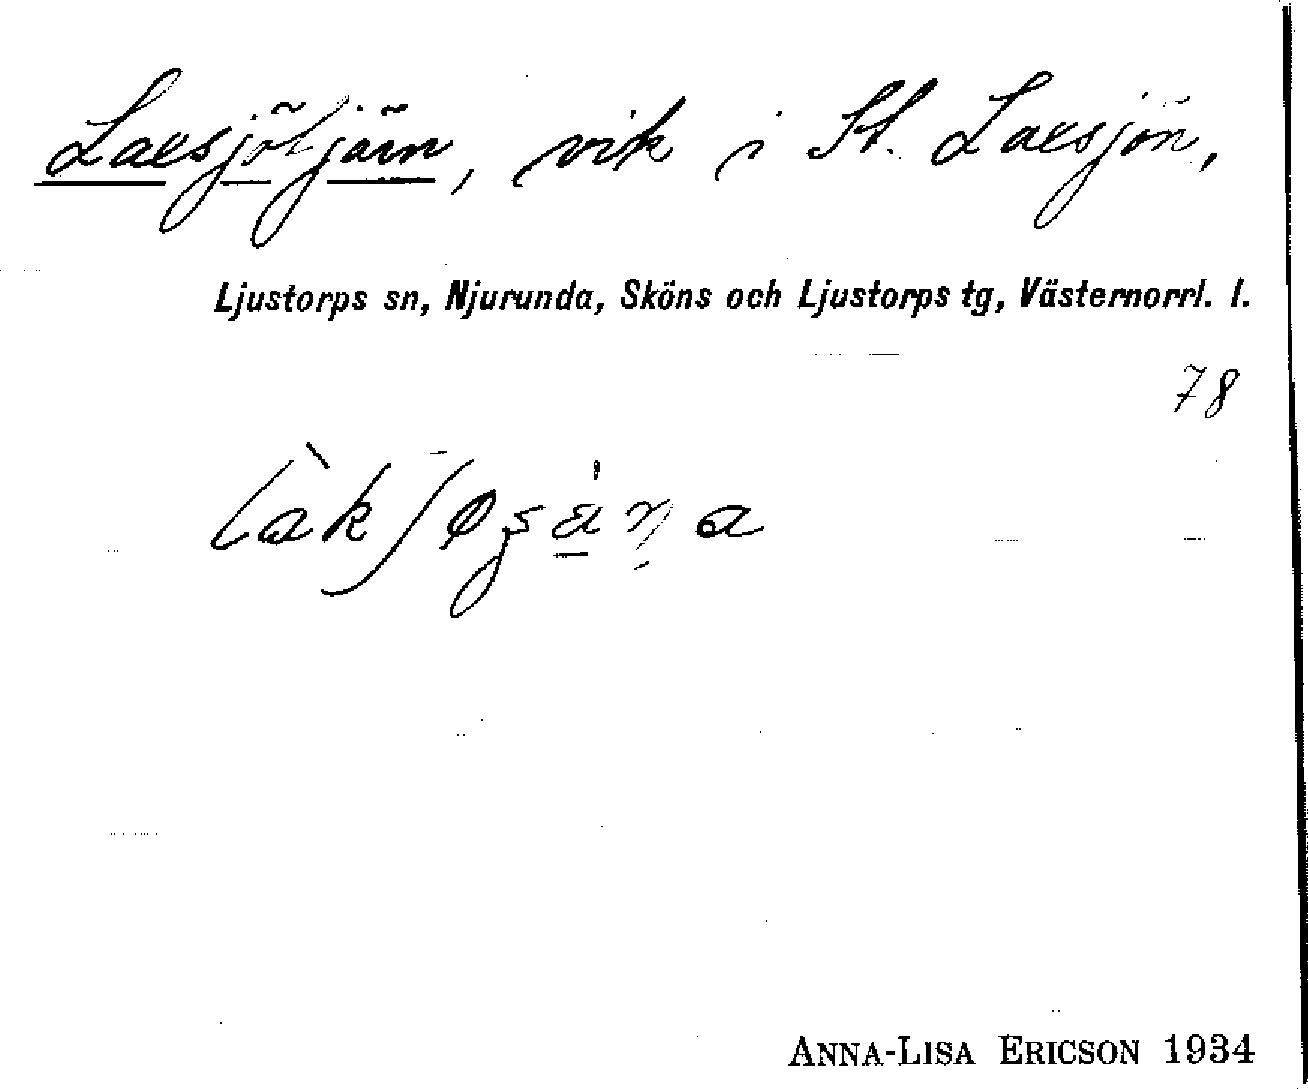 Laxsjötjärn, vik i St. Laxsjön,
Ljustorps sn, Njurunda, Sköns och Ljustorps tg, Västernorrl. l.
78
ANNA-LISA ERICSON 1934